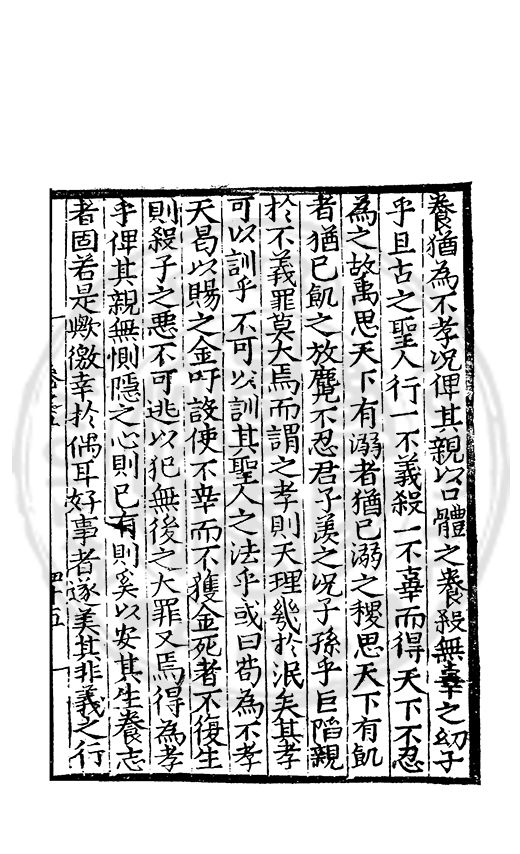 養猶為不孝况俾其親以口體之養殺無辜之幼子
乎且古之聖人行一不義殺一不辜而得天下不忍
為之故禹思天下有溺者猶已溺之稷思天下有飢
者猶已飢之放麑不忍君子羨之况子孫乎巨陷親
於不義罪莫大焉而謂之孝則天理幾於泯矣其孝
可以訓乎不可以訓其聖人之法乎或曰苟為不孝
天曷以賜之金吁設使不幸而不獲金死者不復生
則殺子之悪不可逃以犯無後之大罪又焉得為孝
乎俾其親無惻隱之心則已有則奚以安其生養志
者固若是歟徼幸於偶耳好事者遂美其非義之行
四十五